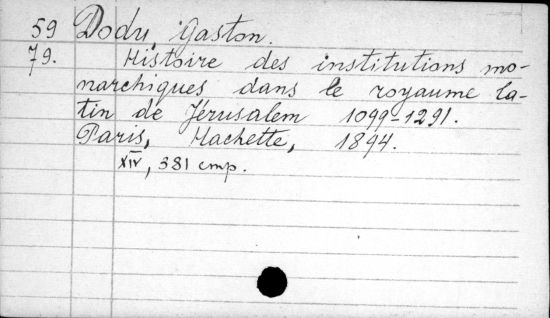 59 Dodu, Gaston.
79. Histoire des institutions mo-
narchiques dans le royaume la-
tin de Jérusalem 1099-1291.
Paris, Hachette, 1894.
XIV, 381 стр.